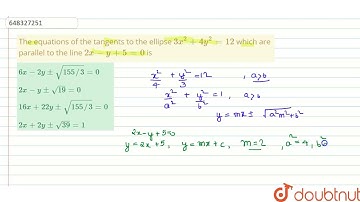 648327251
The equations of the tangents to the ellipse 3x² + 4y² = 12 which are
parallel to the line 2x − y + 5 = 0 is
6x − 2y ± √(155/3) = 0
2x − y ± √19 = 0
16x + 22y ± √(155/3) = 0
2x + 2y ± √39 = 1
x²/4 + y²/3 = 12 , a>b
x²/a² + y²/b² = 1 , a>b
y = mx ± √(a²m²+b²)
2x-y+5=0
y = 2x+5, y = mx+c, m=2 , a²=4, b²=
doubtnut